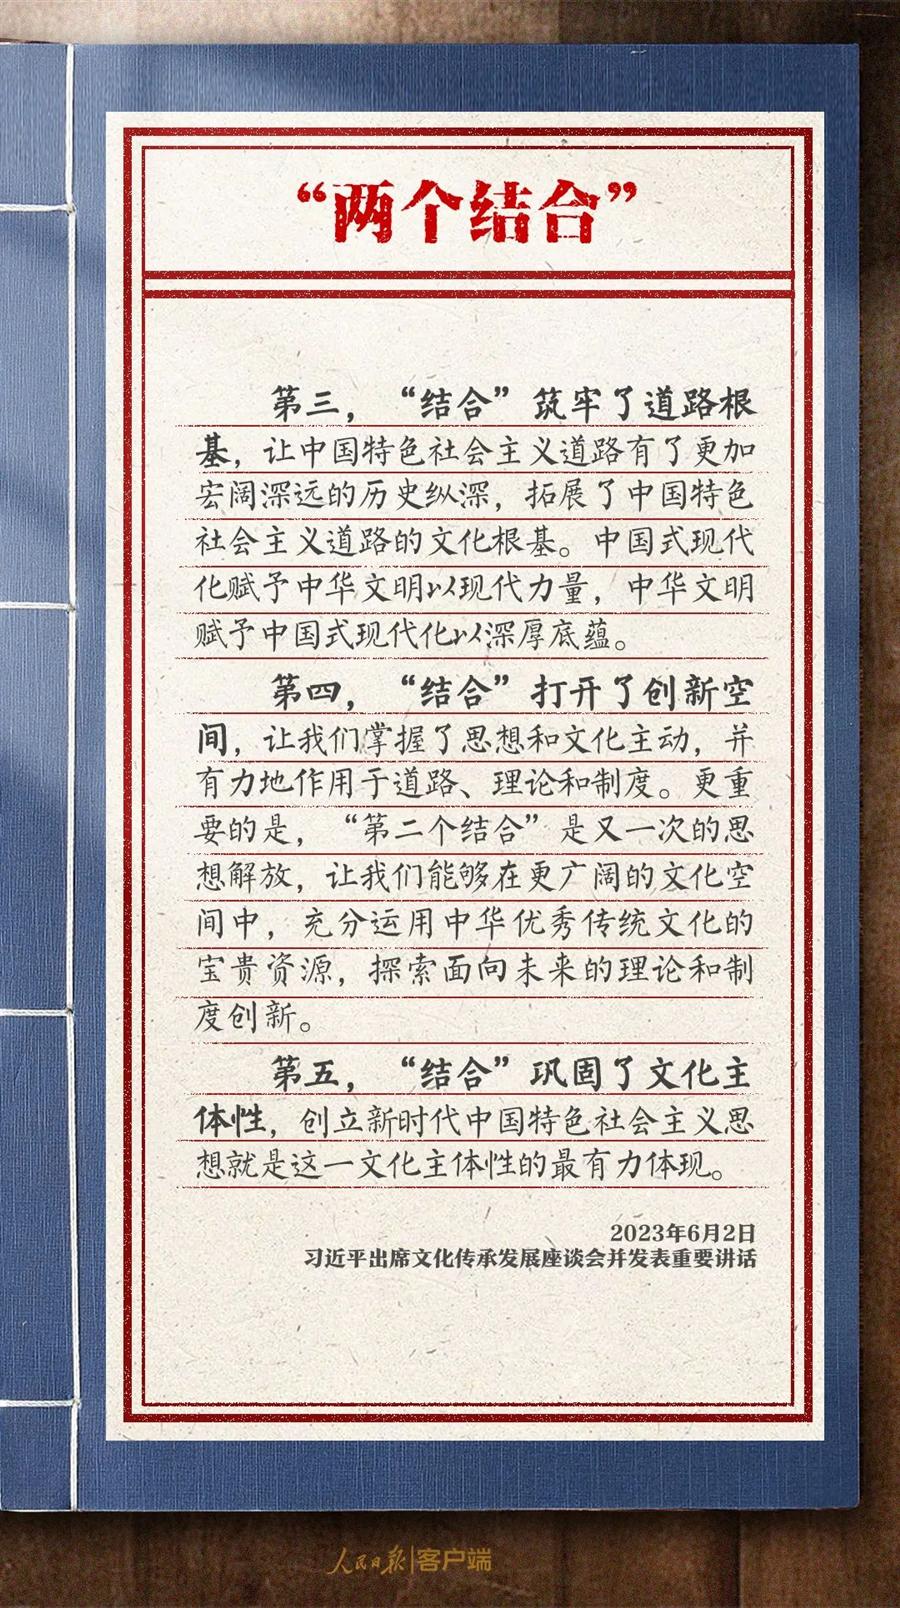 “两个结合”
第三，“结合”筑牢了道路根
基，让中国特色社会主义道路有了更加
宏阔深远的历史纵深，拓展了中国特色
社会主义道路的文化根基。中国式现代
化赋予中华文明以现代力量，中华文明
赋予中国式现代化以深厚底蕴。
第四，“结合”打开了创新空
间，让我们掌握了思想和文化主动，并
有力地作用于道路、理论和制度。更重
要的是，“第二个结合”是又一次的思
想解放，让我们能够在更广阔的文化空
间中，充分运用中华优秀传统文化的
宝贵资源，探索面向未来的理论和制
度创新。
第五，“结合”巩固了文化主
体性，创立新时代中国特色社会主义思
想就是这一文化主体性的最有力体现。
2023年6月2日
习近平出席文化传承发展座谈会并发表重要讲话
人民日报|客户端